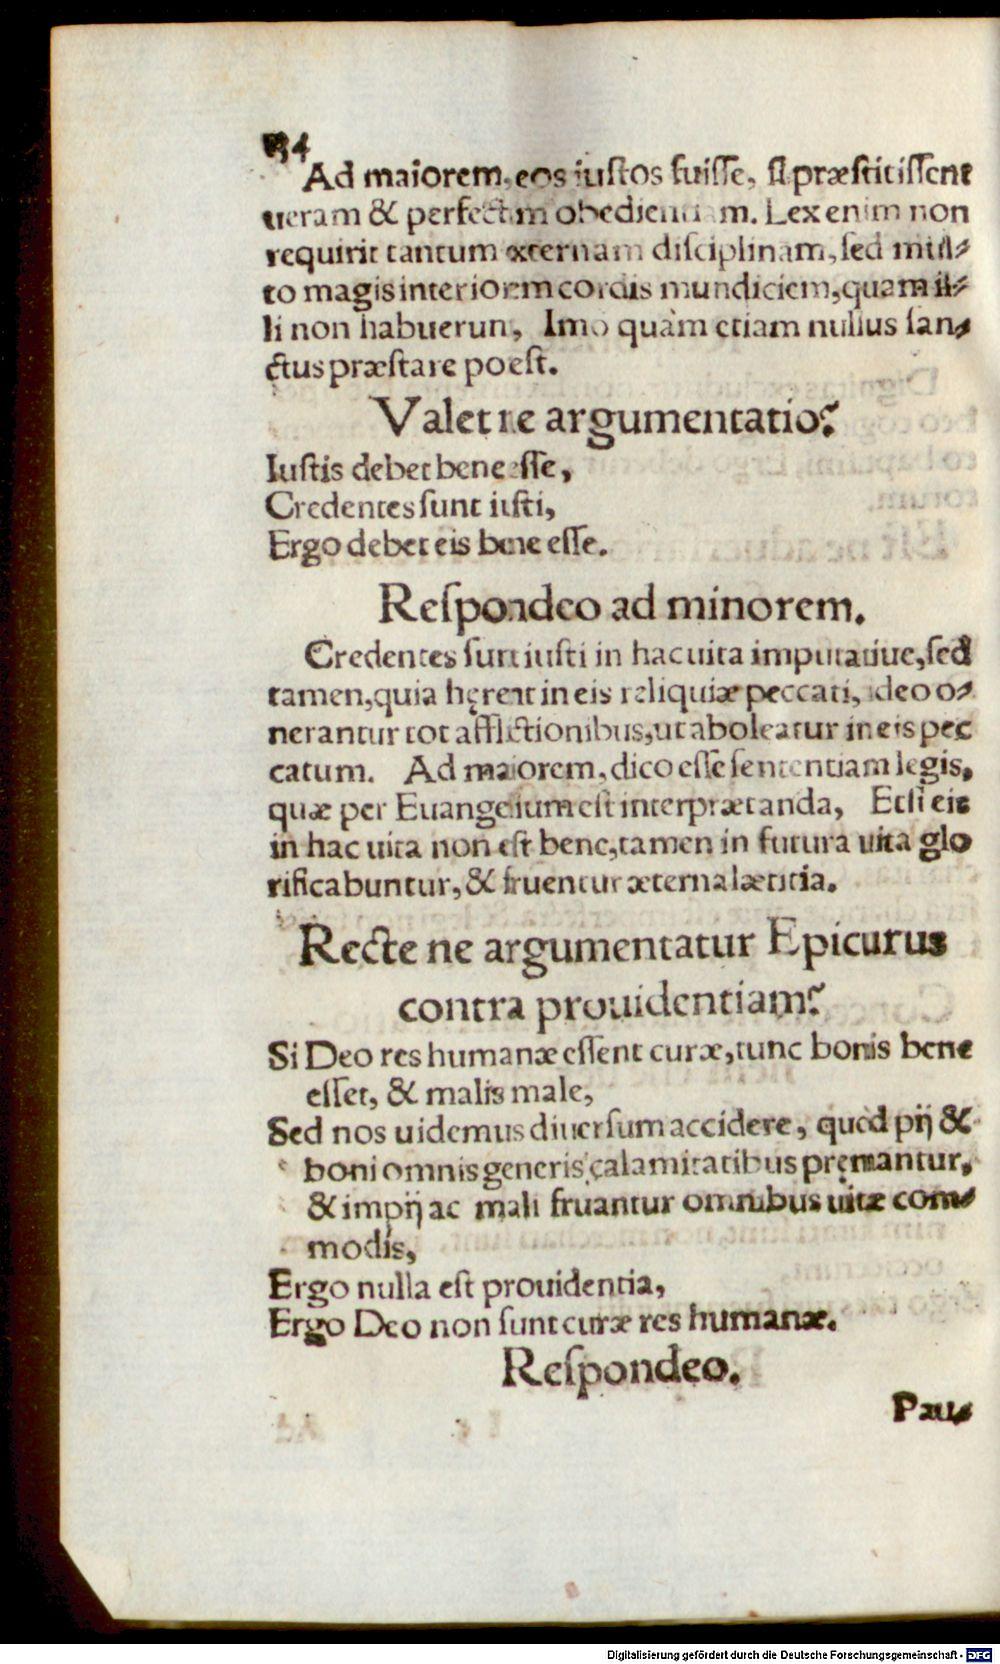 134
Ad maiorem, eos iustos fuisse, si præstitissent
ueram & perfectam obedientiam. Lex enim non
requirit tantum externam disciplinam, sed mul⸗
to magis interiorem cordis mundiciem, quam il⸗
li non habuerunt, Imo quàm etiam nullus san⸗
ctus præstare potest.
Valet ne argumentatio?
Iustis debet bene esse,
Credentes sunt iusti,
Ergo debet eis bene esse.
Respondeo ad minorem.
Credentes sunt iusti in hac uita imputatiue, sed
tamen, quia hęrent in eis reliquiæ peccati, ideo o⸗
nerantur tot afflictionibus, ut aboleatur in eis pec
catum. Ad maiorem, dico esse sententiam legis,
quæ per Euangelium est interprætanda, Etsi eis
in hac uita non est bene, tamen in futura uita glo
rificabuntur, & fruentur æterna lætitia.
Recte ne argumentatur Epicurus
contra prouidentiam?
Si Deo res humanæ essent curæ, tunc bonis bene
esset, & malis male,
Sed nos uidemus diuersum accidere, quòd pij &
boni omnis generis calamitatibus pręmantur,
& impij ac mali fruantur omnibus uitæ com⸗
modis,
Ergo nulla est prouidentia,
Ergo Deo non sunt curæ res humanæ.
Respondeo.
Pau⸗
Digitalisierung gefördert durch die Deutsche Forschungsgemeinschaft - DFG